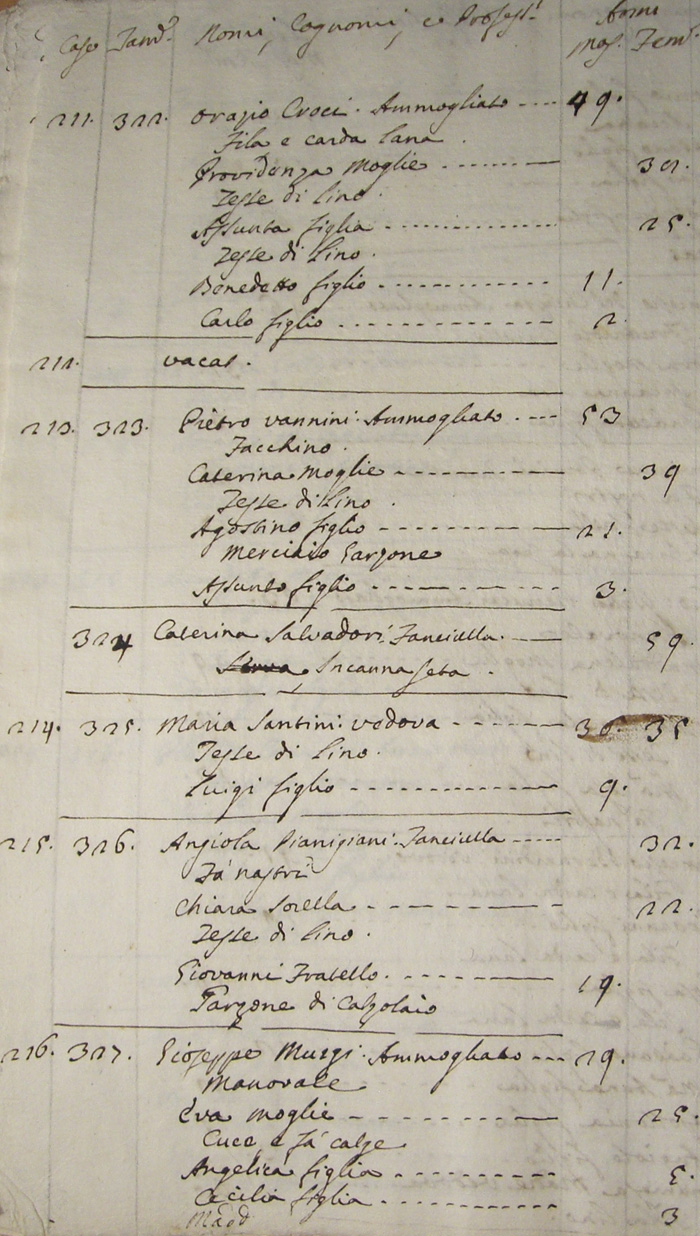 Case Fam.e Nomi, Cognomi, e Profess.i Anni
Mas. Fem.
211. 322. Orazio Croci. Ammogliato ---- 49.
Fila e carda lana.
Providenza Moglie ------
Tesse di lino.
Assunta figlia ------ 25.
Tesse di lino.
Benedetto figlio ------ 11.
Carlo figlio ------ 2.
212. vacat.
213. 323. Pietro Vannini. Ammogliato ---- 53
Facchino.
Caterina Moglie ------ 39
Tesse di Lino.
Agostino figlio ------ 21.
Merciaio Garzone
Assunto figlio ------ 3.
324 Caterina Salvadori. Fanciulla. --- 59.
Incanna seta.
214. 325. Maria Santini. vedova ------ 35
Tesse di lino.
Luigi figlio ------ 9.
215. 326. Angiola Pianigiani. Fanciulla ---- 32.
Fà nastri
Chiara Sorella ------ 22.
Tesse di lino.
Giovanni Fratello. ------ 19.
Garzone di Calzolaio
216. 327. Gioseppe Murgi. Ammogliato --- 29.
Manovale
Eva moglie ------ 25.
Cuce e fà calze
Angelica figlia ------ 5.
Cecilia figlia ------ 3